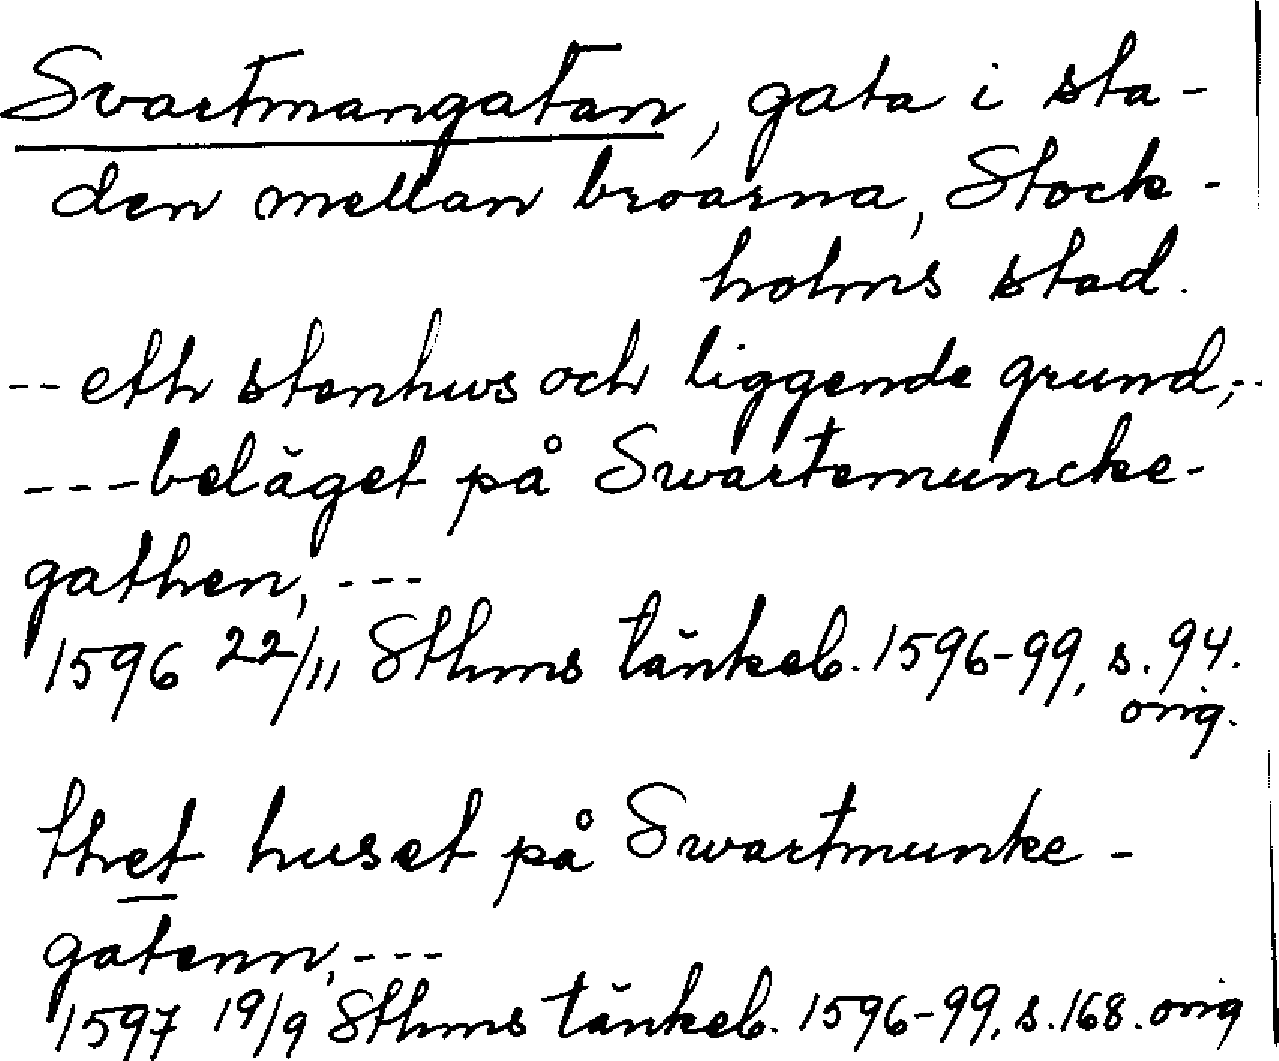 Svartmangatan, gata i sta-
den mellan broarna, Stock-
holms stad.
-- eth stenhws och liggende grund,--
---beläget på Swartemuncke-
gathen, ---
1596 22/11 Sthms tänkeb. 1596-99, s. 94.
orig.
thet huset på Swartmunke-
gatenn, ---
1597 19/9 Sthms tänkeb. 1596-99, s. 168. orig